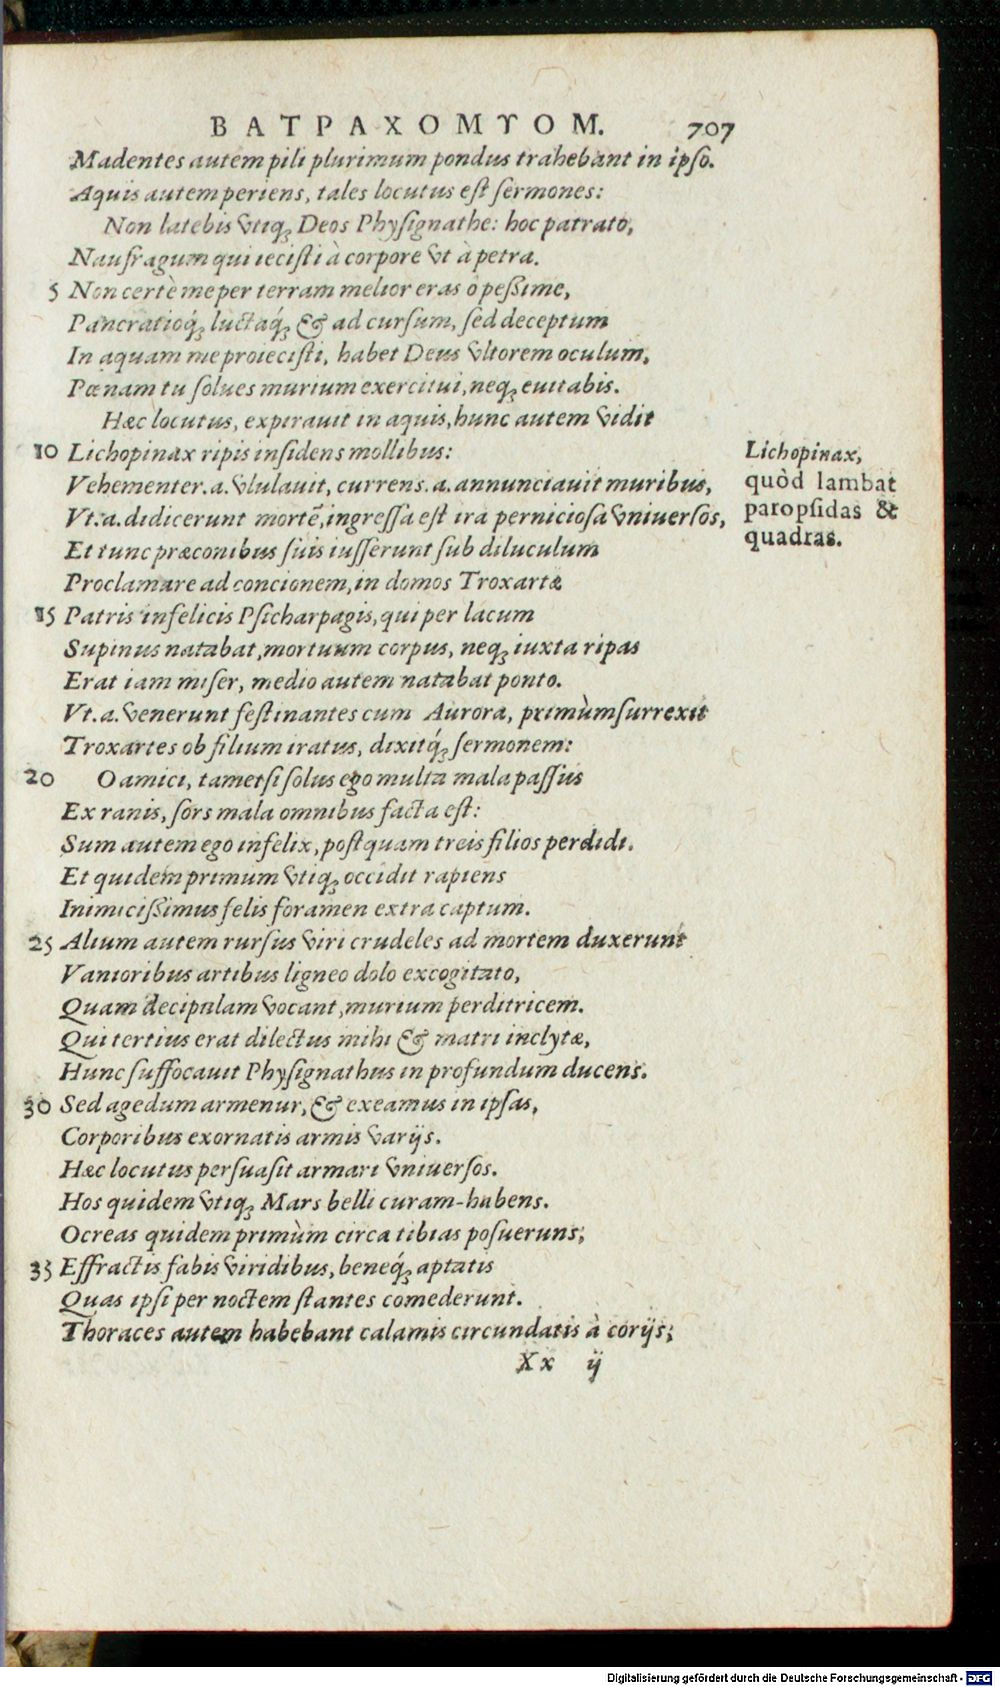 ΒΑΤΡΑΧΟΜΥΟΜ. 707
Madentes autem pili plurimum pondus trahebant in ipſo.
Aquis autem periens, tales locutus eſt ſermones:
Non latebis vtiq; Deos Phyſignathe: hoc patrato,
Naufragum qui iecisti à corpore vt à petra.
5 Non certè me per terram melior eras ô peßime,
Pancratioq́; luctaq́; & ad curſum, ſed deceptum
In aquam me proieciſti, habet Deus vltorem oculum,
Pœnam tu ſolues murium exercitui, neq; euitabis.
Hæc locutus, expirauit in aquis, hunc autem vidit
10 Lichopinax ripis inſidens mollibus:
Vehementer.a.vlulauit, currens.a.annunciauit muribus,
Vt.a.didicerunt mortē, ingreſſa eſt ira pernicioſa vniuerſos,
Et tunc præconibus ſuis iuſſerunt ſub diluculum
Proclamare ad concionem, in domos Troxartæ
15 Patris infelicis Pſicharpagis, qui per lacum
Supinus natabat, mortuum corpus, neq; iuxta ripas
Erat iam miſer, medio autem natabat ponto.
Vt.a.venerunt feſtinantes cum Aurora, primùm ſurrexit
Troxartes ob filium iratus, dixitq́; ſermonem:
20 O amici, tametſi ſolus ego multa mala paſſus
Ex ranis, ſors mala omnibus facta eſt:
Sum autem ego infelix, poſtquam treis filios perdidi.
Et quidem primum vtiq; occidit rapiens
Inimicißimus felis foramen extra captum.
25 Alium autem rurſus viri crudeles ad mortem duxerunt
Vanioribus artibus ligneo dolo excogitato,
Quam decipulam vocant, murium perditricem.
Qui tertius erat dilectus mihi & matri inclytæ,
Hunc ſuffocauit Phyſignathus in profundum ducens.
30 Sed agedum armenur, & exeamus in ipſas,
Corporibus exornatis armis varijs.
Hæc locutus perſuaſit armari vniuerſos.
Hos quidem vtiq; Mars belli curam-habens.
Ocreas quidem primùm circa tibias poſueruns;
35 Effractis fabis viridibus, beneq́; aptatis
Quas ipſi per noctem ſtantes comederunt.
Thoraces autem habebant calamis circundatis à corijs;
Xx ij
Lichopinax,
quòd lambat
paropſidas &
quadras.
Digitalisierung gefördert durch die Deutsche Forschungsgemeinschaft - DFG